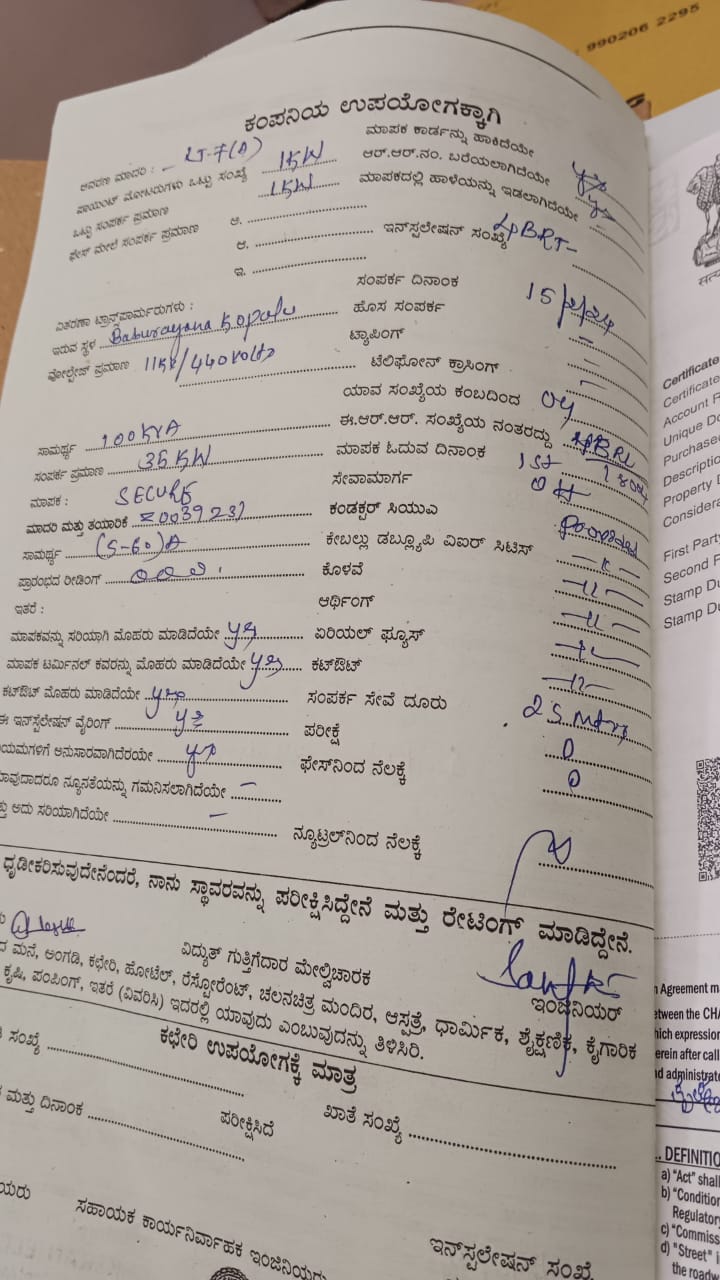 : 990206 2295
ಕಂಪನಿಯ ಉಪಯೋಗಕ್ಕಾಗಿ
ಆವರಣ ಮಾದರಿ : LT-7(A) ಮಾಪಕ ಕಾರ್ಡನ್ನು ಹಾಕಿದೆಯೇ
ಪಾಯಿಂಟ್ ಮೋಟರುಗಳು ಒಟ್ಟು ಸಂಖ್ಯೆ 1KW ಆರ್.ಆರ್.ನಂ. ಬರೆಯಲಾಗಿದೆಯೇ
ಒಟ್ಟು ಸಂಪರ್ಕ ಪ್ರಮಾಣ 1KW ಮಾಪಕದಲ್ಲಿ ಹಾಳೆಯನ್ನು ಇಡಲಾಗಿದೆಯೇ
ಫೇಸ್ ಮೇಲೆ ಸಂಪರ್ಕ ಪ್ರಮಾಣ ಅ.
ಆ. ಇನ್‌ಸ್ಟಲೇಷನ್ ಸಂಖ್ಯೆ
ಇ.
ವಿತರಣಾ ಟ್ರಾನ್ಸ್‌ಫಾರ್ಮರುಗಳು : ಸಂಪರ್ಕ ದಿನಾಂಕ
ಇರುವ ಸ್ಥಳ Baburayana Kopalu ಹೊಸ ಸಂಪರ್ಕ
ವೋಲ್ಟೇಜ್ ಪ್ರಮಾಣ 11KV/440Volts ಟ್ಯಾಪಿಂಗ್ -
ಟೆಲಿಫೋನ್ ಕ್ರಾಸಿಂಗ್ -
ಯಾವ ಸಂಖ್ಯೆಯ ಕಂಬದಿಂದ 04
ಸಾಮರ್ಥ್ಯ 100KVA ಈ.ಆರ್.ಆರ್. ಸಂಖ್ಯೆಯ ನಂತರದ್ದು
ಸಂಪರ್ಕ ಪ್ರಮಾಣ 35KW ಮಾಪಕ ಓದುವ ದಿನಾಂಕ 1st
ಮಾಪಕ : SECURE ಸೇವಾಮಾರ್ಗ OH
ಮಾದರಿ ಮತ್ತು ತಯಾರಿಕೆ ಕಂಡಕ್ಟರ್ ಸಿಯುವಿ
ಸಾಮರ್ಥ್ಯ (5-60)A ಕೇಬಲ್ಲು ಡಬ್ಲ್ಯೂಪಿ ಎಐಆರ್ ಸಿಟಿಸ್
ಪ್ರಾರಂಭದ ರೀಡಿಂಗ್ ಕೊಳವೆ —॥—
ಇತರೆ : ಆರ್ಥಿಂಗ್ —॥—
ಮಾಪಕವನ್ನು ಸರಿಯಾಗಿ ಮೊಹರು ಮಾಡಿದೆಯೇ yes ಏರಿಯಲ್ ಫ್ಯೂಸ್
ಮಾಪಕ ಟರ್ಮಿನಲ್ ಕವರನ್ನು ಮೊಹರು ಮಾಡಿದೆಯೇ yes ಕಟ್‌ಔಟ್ —॥—
ಕಟ್‌ಔಟ್ ಮೊಹರು ಮಾಡಿದೆಯೇ yes ಸಂಪರ್ಕ ಸೇವೆ ದೂರು 25 Mtrs
ಈ ಇನ್‌ಸ್ಟಲೇಷನ್ ವೈರಿಂಗ್ yes ಪರೀಕ್ಷೆ 0
ಯಮಗಳಿಗೆ ಅನುಸಾರವಾಗಿದೆರಯೇ yes ಫೇಸ್‌ನಿಂದ ನೆಲಕ್ಕೆ 0
ಾವುದಾದರೂ ನ್ಯೂನತೆಯನ್ನು ಗಮನಿಸಲಾಗಿದೆಯೇ -
ತ್ತು ಅದು ಸರಿಯಾಗಿದೆಯೇ - ನ್ಯೂಟ್ರಲ್‌ನಿಂದ ನೆಲಕ್ಕೆ
ಧೃಡೀಕರಿಸುವುದೇನೆಂದರೆ, ನಾನು ಸ್ಥಾವರವನ್ನು ಪರೀಕ್ಷಿಸಿದ್ದೇನೆ ಮತ್ತು ರೇಟಿಂಗ್ ಮಾಡಿದ್ದೇನೆ.
ವಿದ್ಯುತ್ ಗುತ್ತಿಗೆದಾರ ಮೇಲ್ವಿಚಾರಕ ಇಂಜಿನಿಯರ್
ದ ಮನೆ, ಅಂಗಡಿ, ಕಛೇರಿ, ಹೋಟೆಲ್, ರೆಸ್ಟೋರೆಂಟ್, ಚಲನಚಿತ್ರ ಮಂದಿರ, ಆಸ್ಪತ್ರೆ, ಧಾರ್ಮಿಕ, ಶೈಕ್ಷಣಿಕ, ಕೈಗಾರಿಕ
ಕೃಷಿ, ಪಂಪಿಂಗ್, ಇತರೆ (ವಿವರಿಸಿ) ಇದರಲ್ಲಿ ಯಾವುದು ಎಂಬುವುದನ್ನು ತಿಳಿಸಿರಿ.
ಕಛೇರಿ ಉಪಯೋಗಕ್ಕೆ ಮಾತ್ರ
ಸಂಖ್ಯೆ ಖಾತೆ ಸಂಖ್ಯೆ
ಮತ್ತು ದಿನಾಂಕ ಪರೀಕ್ಷಿಸಿದೆ
ಯರು ಸಹಾಯಕ ಕಾರ್ಯನಿರ್ವಾಹಕ ಇಂಜಿನಿಯರು ಇನ್‌ಸ್ಟಲೇಷನ್ ಸಂಖ್ಯೆ
Certificate
Certificate
Account R
Unique Do
Purchase
Descriptio
Property D
Considera
First Party
Second P
Stamp Du
Stamp Du
n Agreement m
etween the CHA
hich expression
erein after call
nd administrat
.. DEFINITIO
a) "Act" shal
b) "Condition
Regulatory
c) "Commiss
d) "Street" i
the roadw